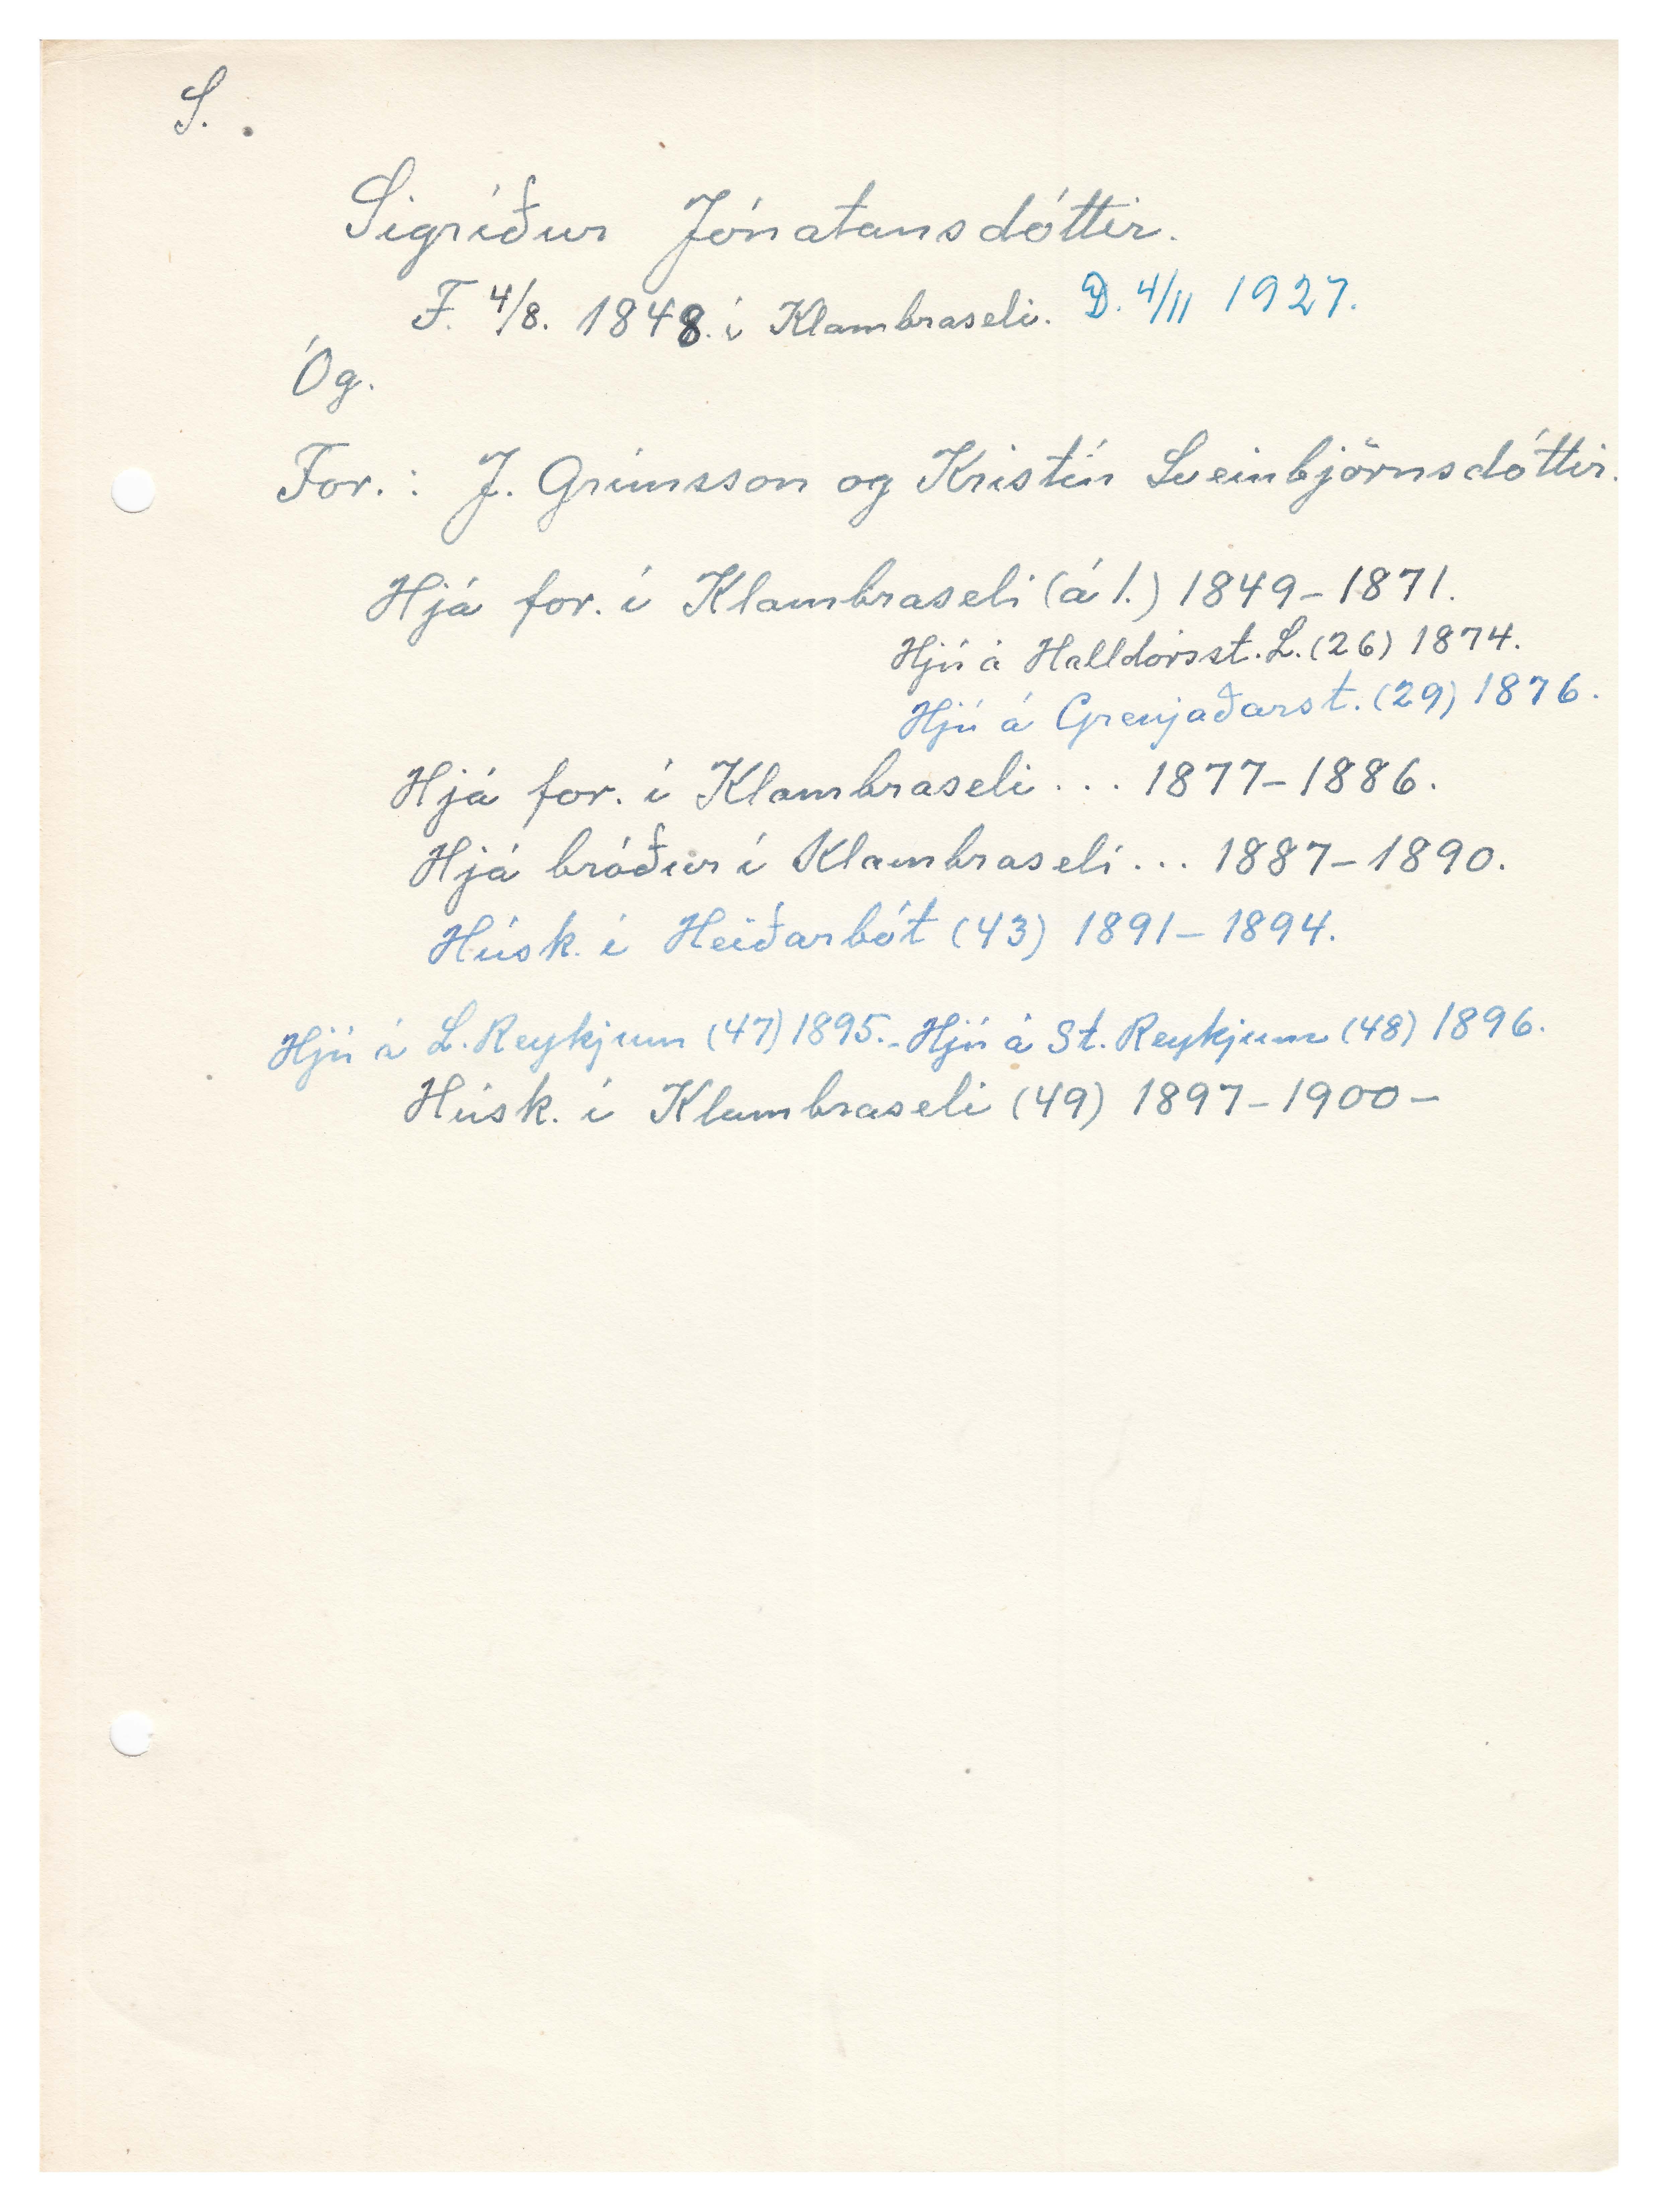 S.
Sigríður Jónatansdóttir.
F. 4/8. 1848. í Klambraseli. D. 4/11 1927.
Óg.
For.: J. Grímsson og Kristín Sveinbjörnsdóttir.
Hjá for. í Klambraseli (á 1.) 1849-1871.
Hjú á Halldórsst. L. (26) 1874.
Hjú á Grenjaðarst. (29) 1876.
Hjá for. í Klambraseli ... 1877-1886.
Hjá bróður í Klambraseli ... 1887-1890.
Húsk. í Heiðarbót (43) 1891-1894.
Hjú á L. Reykjum (47) 1895.- Hjú á St. Reykjum (48) 1896.
Húsk. í Klambraseli (49) 1897-1900-